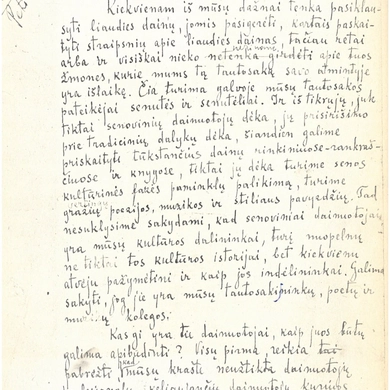 Kiekvienam iš mūsų dažnai tenka pasiklau-
syti liaudies dainų, jomis pasigerėti, kartais paskai-
tyti straipsnių apie liaudies dainas, tačiau retai
arba ir visiškai nieko netenka girdėti apie tuos
žmones, kurie mums tą tautosaką savo atmintyje
yra išlaikę. Čia turima galvoje mūsų tautosakos
pateikėjai senutės ir senutėliai. Ir iš tikrųjų, juk
tiktai senovinių dainuotojų dėka, jų prisirišimo
prie tradicinių dalykų dėka, šiandien galime
priskaityti tūkstančius dainų rinkiniuose-rankraš-
čiuose ir knygose, tiktai jų dėka turime senos
kultūrinės fazės paminklų palikimą, turime
gražių poezijos, muzikos ir stiliaus pavyzdžių. Tad
nesuklysime sakydami, kad senoviniai dainuotojai
yra mūsų kultūros dalininkai, turį nuopelnų
ne tiktai tos kultūros istorijai, bet kiekvienu
atveju pažymėtini ir kaip jos indėlininkai. Galima
sakyti, jog jie yra mūsų tautosakininkų, poetų ir
kolegos.
Kas gi yra tie dainuotojai, kaip juos būtų
galima apibūdinti? Visų pirma, reikia
pabrėžti kad mūsų krašte neužtikta dainuotojų
dainuotojų, kurie